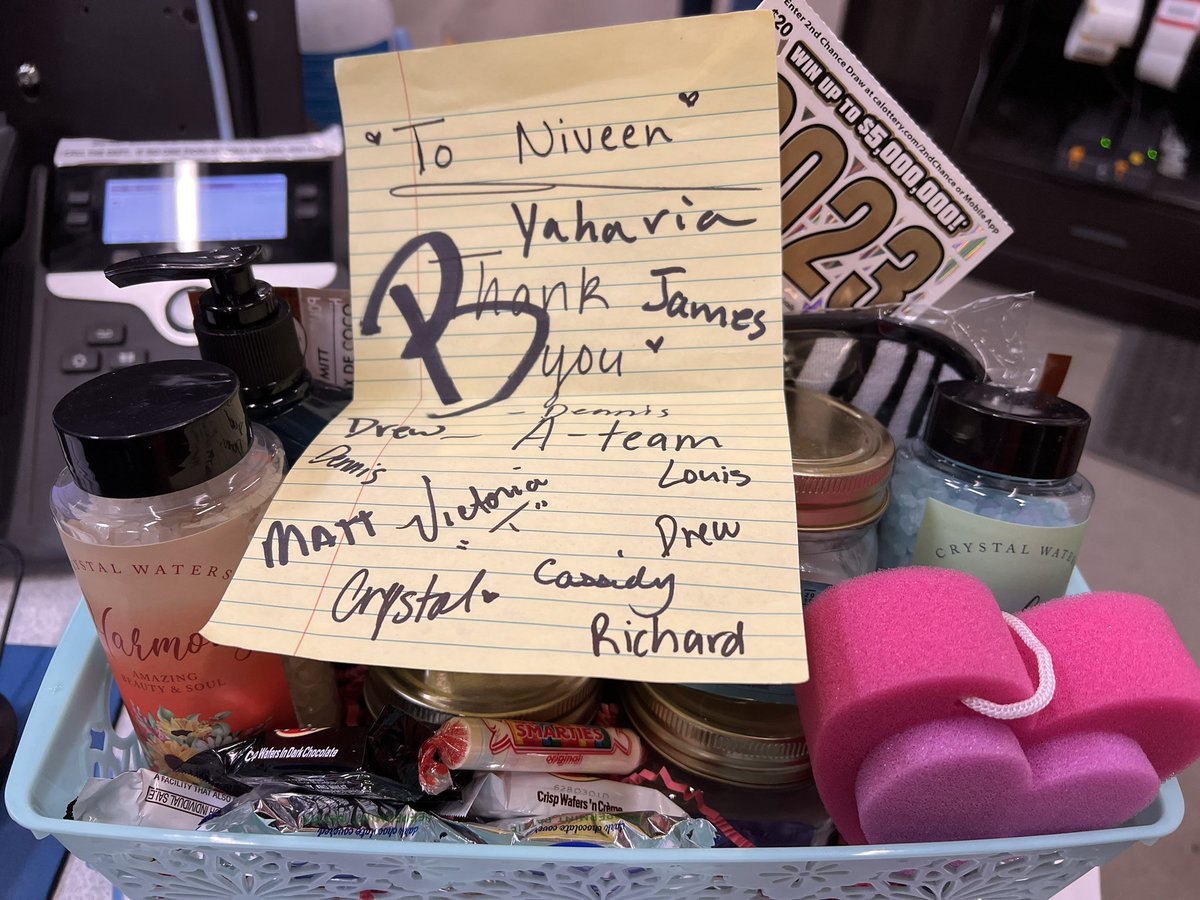 To Niveen
Yaharia
Thank James
you
B
- Dennis
Drew - A-team
Dennis
Louis
MATT Victoria
Drew
Cassidy
Crystal
Richard
$20
Enter 2nd Chance Draw at calottery.com/2ndChance or Mobile App
WIN UP TO $5,000,000!
2023
MITT
X DE COCO
CRYSTAL WATERS
STAL WATERS
Harmony
AMAZING
BEAUTY & SOUL
Wafers In Dark Chocolate
SMARTIES
original
A FACILITY THAT ALSO
FOR INDIVIDUAL SALE
Crisp Wafers 'n Crème
dark chocolate covered
dark chocolate covered